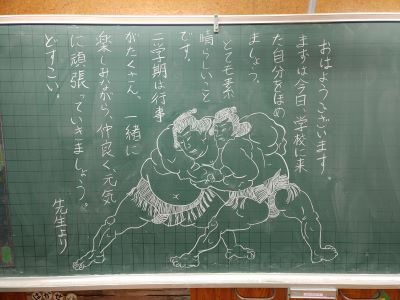 おはようございます。
まずは今日、学校に来
た自分をほめ
ましょう。
とても素
晴らしいこと
です。
二学期は行事
がたくさん、一緒に
楽しみながら、仲良く、元気
に頑張っていきましょう。
どすこい。
先生より